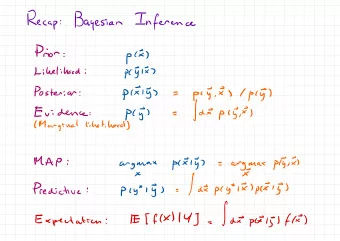 Recap: Bayesian Inference
Prior: p(x⃗)
Likelihood: p(y⃗|x⃗)
Posterior: p(x⃗|y⃗) = p(y⃗,x⃗) / p(y⃗)
Evidence: p(y⃗) = ∫dx⃗ p(y⃗,x⃗)
(Marginal likelihood)
MAP: argmax p(x⃗|y⃗) = argmax p(y⃗,x⃗)
x⃗ x⃗
Predictive: p(y*|y⃗) = ∫dx⃗ p(y*|x⃗)p(x⃗|y⃗)
Expectation: 𝔼[f(x)|y] = ∫dx⃗ p(x⃗|y⃗) f(x⃗)